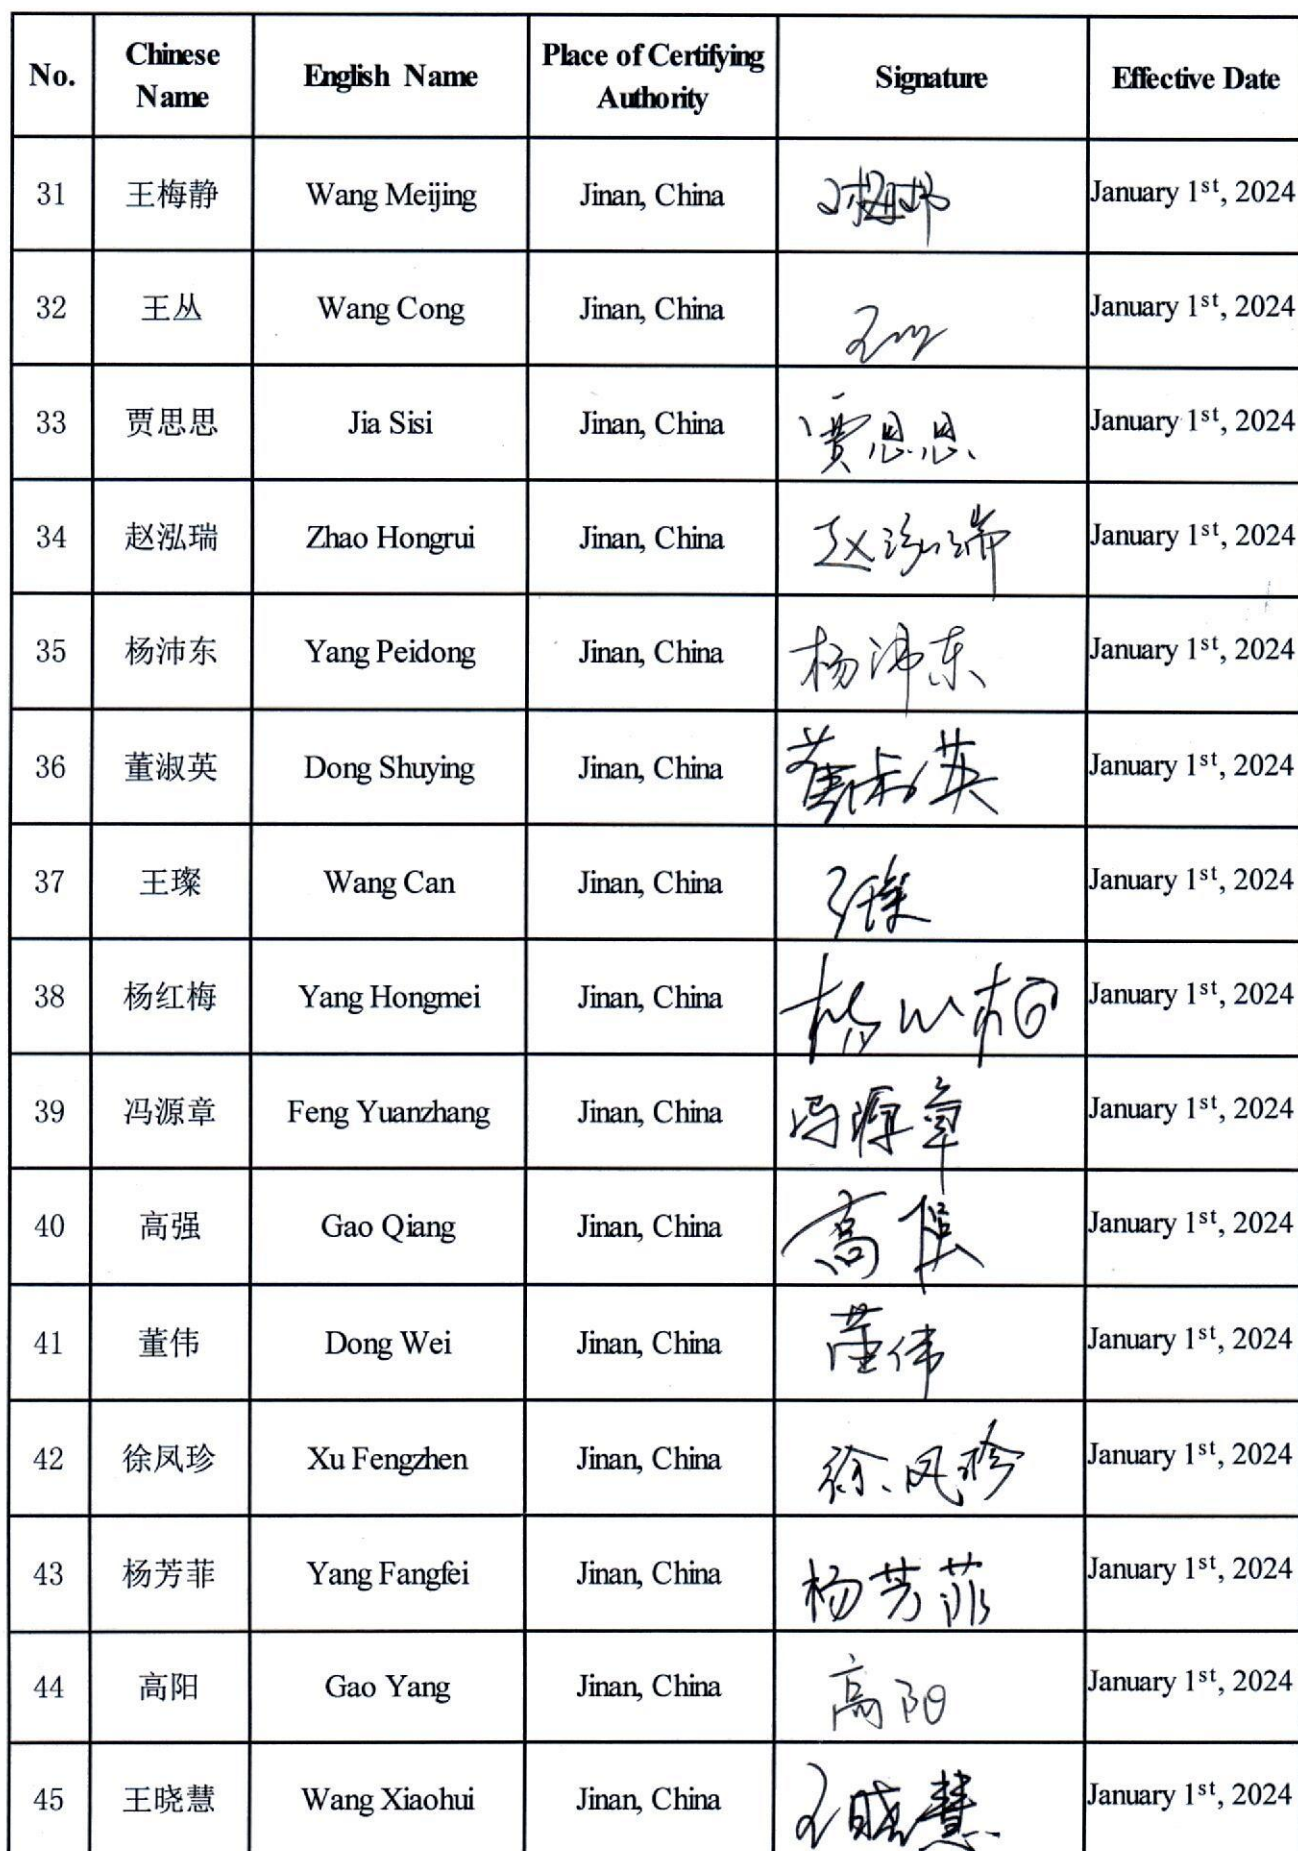 No. Chinese Name English Name Place of Certifying Authority Signature Effective Date
31 王梅静 Wang Meijing Jinan, China 王梅静 January 1st, 2024
32 王丛 Wang Cong Jinan, China 王丛 January 1st, 2024
33 贾思思 Jia Sisi Jinan, China 贾思思 January 1st, 2024
34 赵泓瑞 Zhao Hongrui Jinan, China 赵泓瑞 January 1st, 2024
35 杨沛东 Yang Peidong Jinan, China 杨沛东 January 1st, 2024
36 董淑英 Dong Shuying Jinan, China 董淑英 January 1st, 2024
37 王璨 Wang Can Jinan, China 王璨 January 1st, 2024
38 杨红梅 Yang Hongmei Jinan, China 杨红梅 January 1st, 2024
39 冯源章 Feng Yuanzhang Jinan, China 冯源章 January 1st, 2024
40 高强 Gao Qiang Jinan, China 高强 January 1st, 2024
41 董伟 Dong Wei Jinan, China 董伟 January 1st, 2024
42 徐凤珍 Xu Fengzhen Jinan, China 徐凤珍 January 1st, 2024
43 杨芳菲 Yang Fangfei Jinan, China 杨芳菲 January 1st, 2024
44 高阳 Gao Yang Jinan, China 高阳 January 1st, 2024
45 王晓慧 Wang Xiaohui Jinan, China 王晓慧 January 1st, 2024